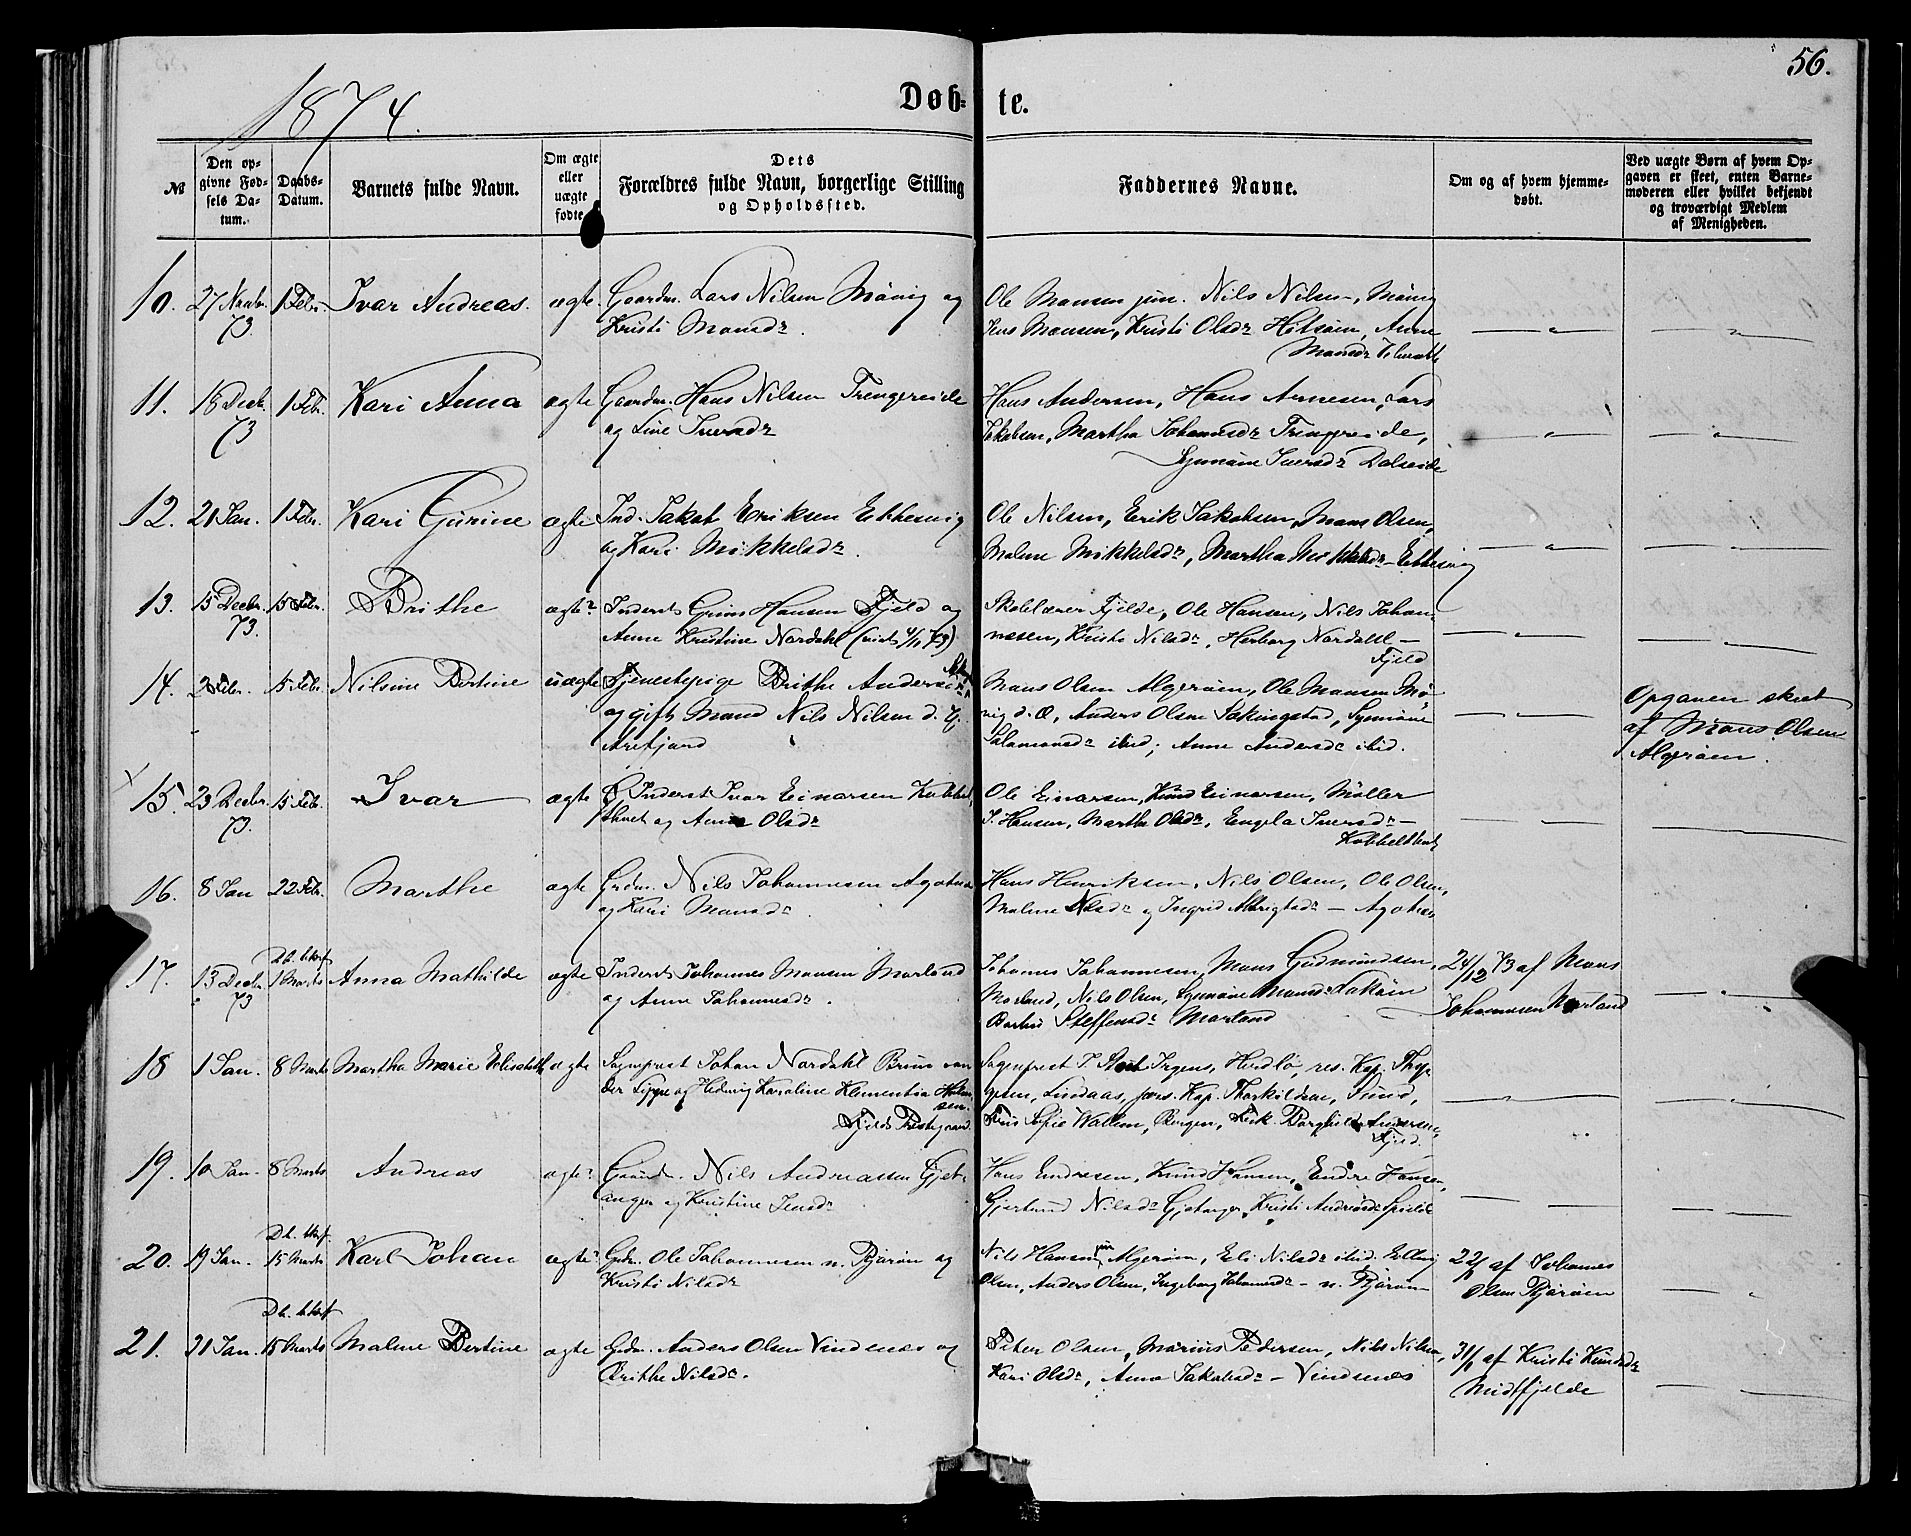 56.
1874.
Døb-te.
№
Den opgivne Fødsels Datum.
Daabs-Datum.
Barnets fulde Navn.
Om ægte eller uægte fødte.
Dets Forældres fulde Navn, borgerlige Stilling og Opholdssted.
Faddernes Navne.
Om og af hvem hjemmedøbt.
Ved uægte Børn af hvem Opgaven er skeet, enten Barnemoderen eller hvilket bekjendt og troværdigt Medlem af Menigheden.
10. 27 Novbr. 1 Febr. Ivar Andreas. ægte. Gaardm. Lars Nilsen Møvig og
73. Kristi Monsdr.
Ole Monsen jun. Nils Nilsen, Møvig
Jens Monsen, Kristi Olsdr Hitsøin, Anne
Monsdr
11. 18 Decbr. 1 Febr. Kari Anna ægte Gaardm. Hans Nilsen Trengereide
73 og Sine Iversdr
Hans Andersen, Hans Arnesen, Lars
Jakobsen, Martha Johannesdr Trengereide,
Synnøve Iversdr Dalseide
12. 21 Jan. 1 Febr. Kari Gurine ægte Ind. Jakob Eriksen Ekkesvig
og Kari Mikkelsdr.
Ole Nilsen, Erik Jakobsen, Mons Olsen,
Malene Mikkelsdr, Martha Mikkelsdr - Ekkesvig
13. 15 Decbr. 15 Febr. Brithe ægte Inderst Grim Hansen Fjeld og
73. Anne Kristine Nordahl
Skolelærer Fjelde, Ole Hansen, Nils Johannesen, Kristi Nilsdr, Herborg Nordahl -
Fjeld
14. 2 Febr. 15 Febr. Nilsine Bertine uægte Tjenestepige Brithe Andersdr
og gift Mand Nils Nilsen d. Y.
Arefjord
Mons Olsen Algerøen, Ole Monsen Møvig d. Æ, Anders Olsen Sækingstad, Synnøve
Salamonsdr ibid; Anne Andersdr ibid.
Opgaven skeet
af Mons Olsen
Algerøen.
15. 23 Decbr. 15 Febr. Ivar ægte Inderst Ivar Einarsen Kobbelt-
73. havet og Anna Olsdr
Ole Einarsen, Knud Einarsen, Møller
J. Hansen, Marthe Olsdr, Engela Iversdr -
16. 8 Jan 22 Febr. Marthe ægte Grdm. Nils Johannesen Agotnes
og Kari Monsdr.
Hans Henriksen, Nils Olsen, Ole Olsen,
Malene Nilsdr og Ingrid - Agotnes
17. 13 Decbr. 1 Marts Anna Mathilde ægte Inderst Johannes Monsen Morland
73 og Anne Johannesdr.
Johannes Johannesen, Mons Gudmundsen,
Morland, Nils Olsen, Synnøve Monsdr
Steffensdr Morland
24/12 73 af Mons
Johannesen Morland
18 1 Jan. 8 Marts Martha Marie Elisabeth ægte Sogneprest Johan Nordahl Brun von
der Lippe og Hedevig Karoline Klementia
Fjelds Prestegaard
Sogneprest J. Irgens, Herdlø, res. Kap.
Lindaas, pers. Kap. Thorkildsen, Sund,
Sofie Wallem, Bergen, Frk. Borghild Andersen,
Fjeld.
19. 10 Jan. 8 Marts Andreas ægte Gaardm. Nils Andreassen Gjet-
anger og Kristine Jensdr
Hans Endresen, Knud Hansen, Endre Hansen,
Gjertrud Nilsdr Gjetanger, Kristi Andreasdr
20. 19 Jan. 15 Marts Karl Johan ægte Grdm. Ole Johannesen n. Bjørøen og
Kristi Nilsdr
Nils Hansen jun Algerøen, Eli Nilsdr ibid. Elling
Olsen, Anders Olsen, Ingeborg Johannesdr - n. Bjørøen
22/1 af Johannes
Olsen Bjørøen
21. 21 Jan. 15 Marts Malene Bertine ægte Grdm. Anders Olsen Vindenes og
Brithe Nilsdr.
Peter Olsen, Marius Pedersen, Nils Nilsen,
Kari Olsdr, Anna Jakobsdr - Vindenes
31/1 af Kristi Knudsdr
Midtfjelde